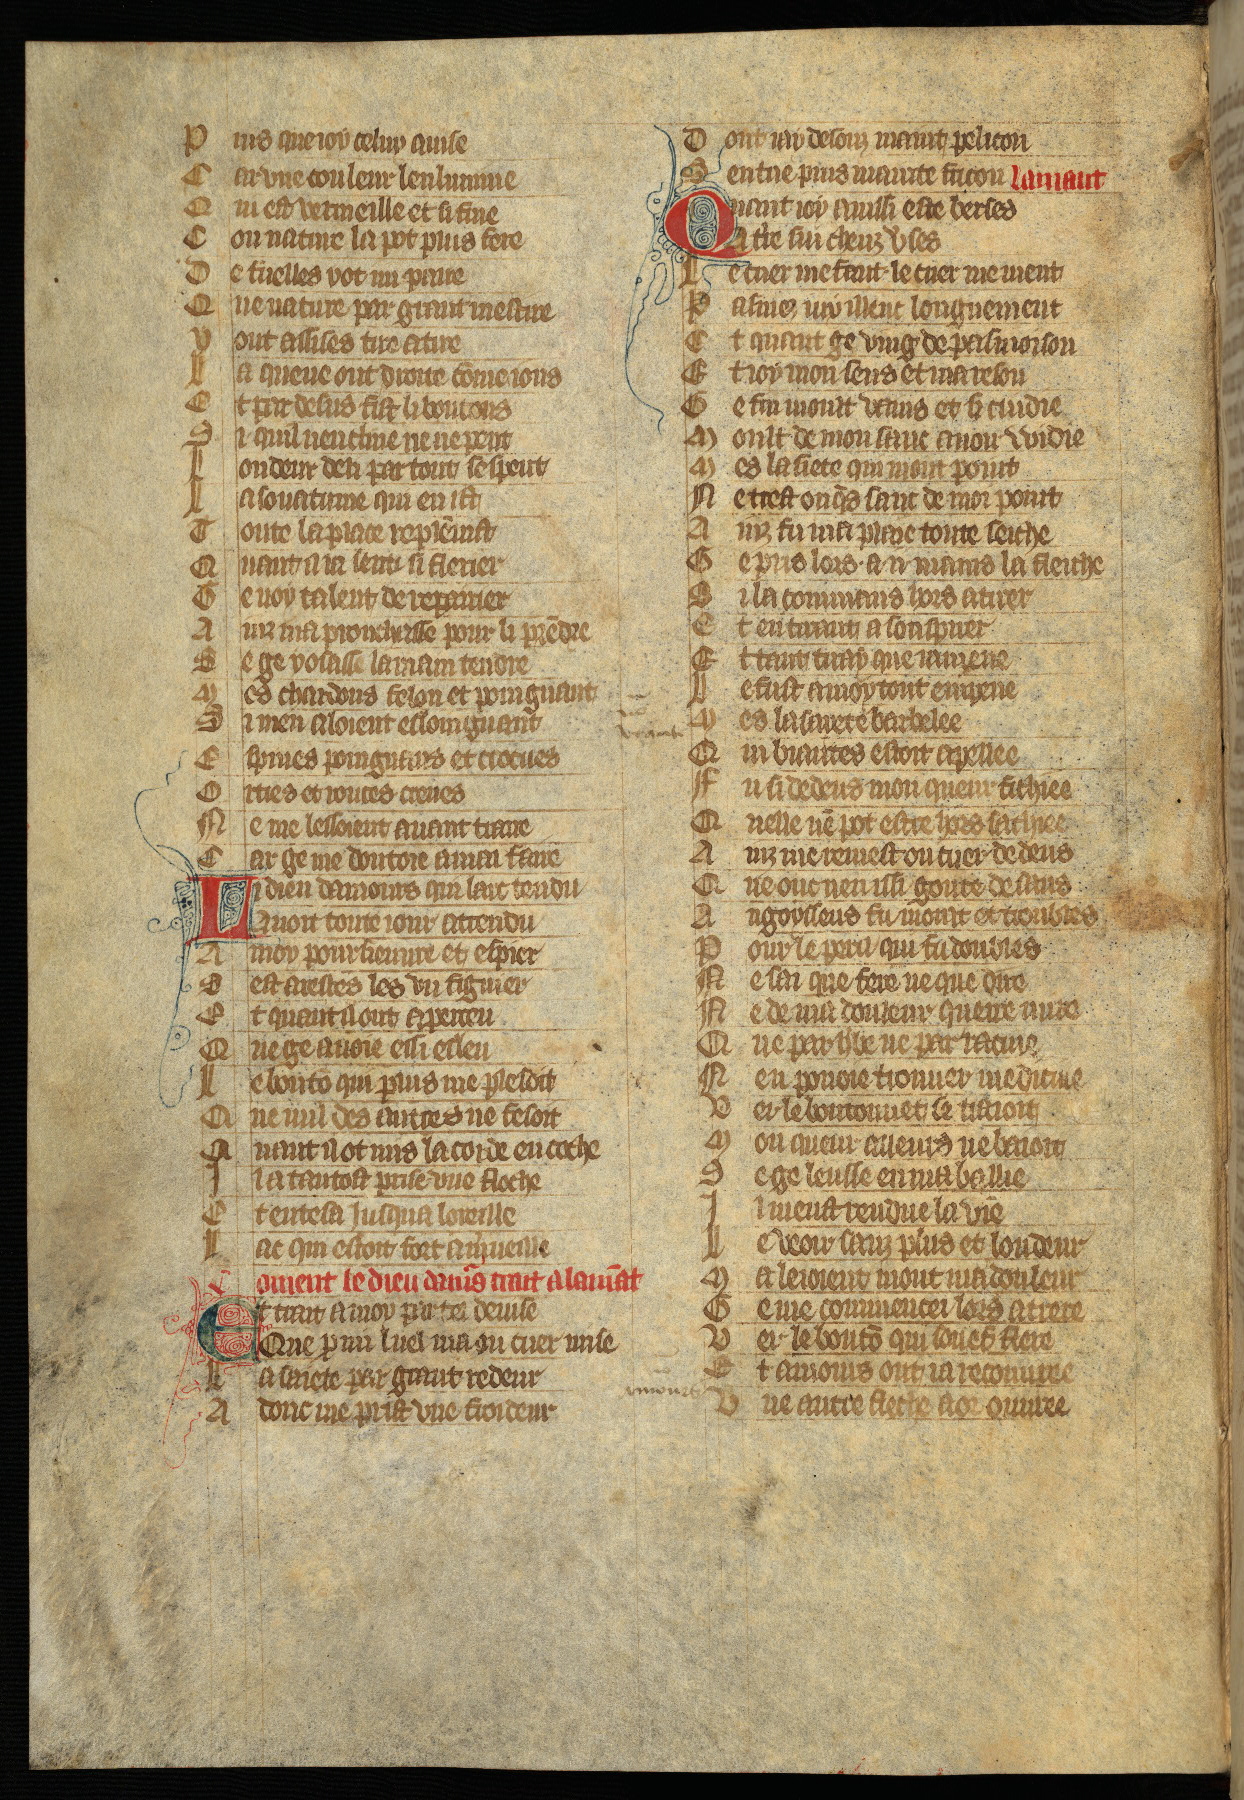 P uis que ioy celuy auise
C ar vne couleur lenlumine
Q ui est vermeille et si fine
C on nature la pot plus fere
D e fuelles vot iiii paire
Q ue nature par grant mestire
y ont assises tire a tire
L a queue ont droite cōme ions
E t par desus sist li boutons
S i quil nencline ne ne pent
L ondeur de li par tout sespent
L a souatume qui en ist
T oute la place replenist
Q uant ia senti si flerier
G e noy talent de reparier
A inz maprouchasse pour li prēdre
S e ge volasse la main tendre
M es chardons felon et poingnant
S i men aloient esloingnant
E spines poingnans et crocues
O rties et ronces creues
N e me lessoient auant traire
C ar ge me doutoie a mal faire
Li dieu damours qui larc tendu
Auoit toute iour attendu
A moy poursieuure et espier
S est arestes les vn figuier
E t quant il ont aperceu
Q ue ge auoie eisi esleu
L e boutō qui plus me plesoit
Q ue nul des autres ne fesoit
Q uant il ot mis la corde en coche
I l a tantost prise vne floche
E t entesa iusqua loreille
L arc qui estoit fort a merueille
Coment le dieu damōs trait a lamāt
Et trait a moy par tel deuise
Que p mi luel ma ou cuer mise
L a saiete par grant redeur
A donc me prist vne froideur
D ont iay desouz maint pelicon
S entue puis mainte fricon lamant
Quant ioy ainssi este berses
A tere fui cheuz vses
L e cuer me faut le cuer me ment
P asmez iuy illeuc longuement
E t quant ge ving de pasmoison
E t roy mon sens et ma reson
G e fui mont vains et si cuidie
M oult de mon sanc auoir vuidie
M es la siete qui mont point
N e trest onq̄s sanc de moi point
A inz fu ma plaie toute seiche
G e pris lors a ii mains la fleiche
S i la commans lors a tirer
E t en tirant a souspirer
E t tant tiray que iamene
L e fust a moy tout enpene
M es la saiete barbelee
Q ui biautes estoit apellee
F u si dedens mon queur fichiee
Q uelle nē pot estre hors sachiee
A inz me remest ou cuer dedens
Q ue onc nen issi goute de sans
A ngoysseus fu mout et troubles
P our le peril qui fu doubles
N e sai que fere ne que dire
N e de ma douleur querre mire
Q ue par hbe ne par racine
N en pouoie trouuer medicine
V er le boutonnet se tiroit
M on queur ailleurs ne baoit
S e ge leusse en ma baillie
I l meust rendue la vie
L e veoir sanz plus et londeur
M aleioient mont ma douleur
G e me commencei lors a trere
V er le boutō qui souef flere
E t amours ont ia recouuree
V ne autre fleche a or ouuree